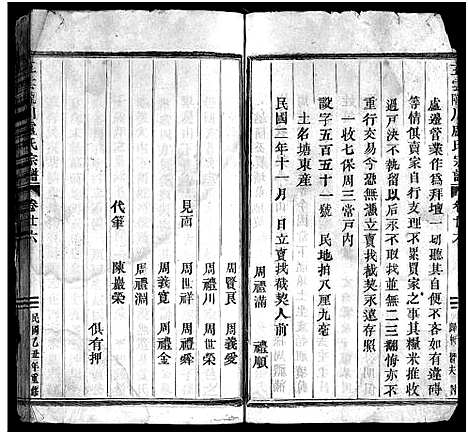 五雲龍川盧氏宗譜
卷廿六
盧邊管業作為拜壇一切聽其自便不各如有違碍
等情俱賣家自行支理不累買家之事其糧米推收
過戶決不執留以后亦不取找並無二三翻悔亦不
重行交易今恐無憑立賣找截契永遠存照
一收七保周三當戶內
設字五百五十一號　民地拍八厘九毫
土名塘東産
民國三年十一月　日立賣找截契人前
周禮滿　禮順
周賢良　周義愛
周禮川　周世榮
見面　周世祥　周禮舜
周義寬　周禮金
周禮淵
代筆　陳嚴榮
俱有押
卷廿六
民國乙丑年重修